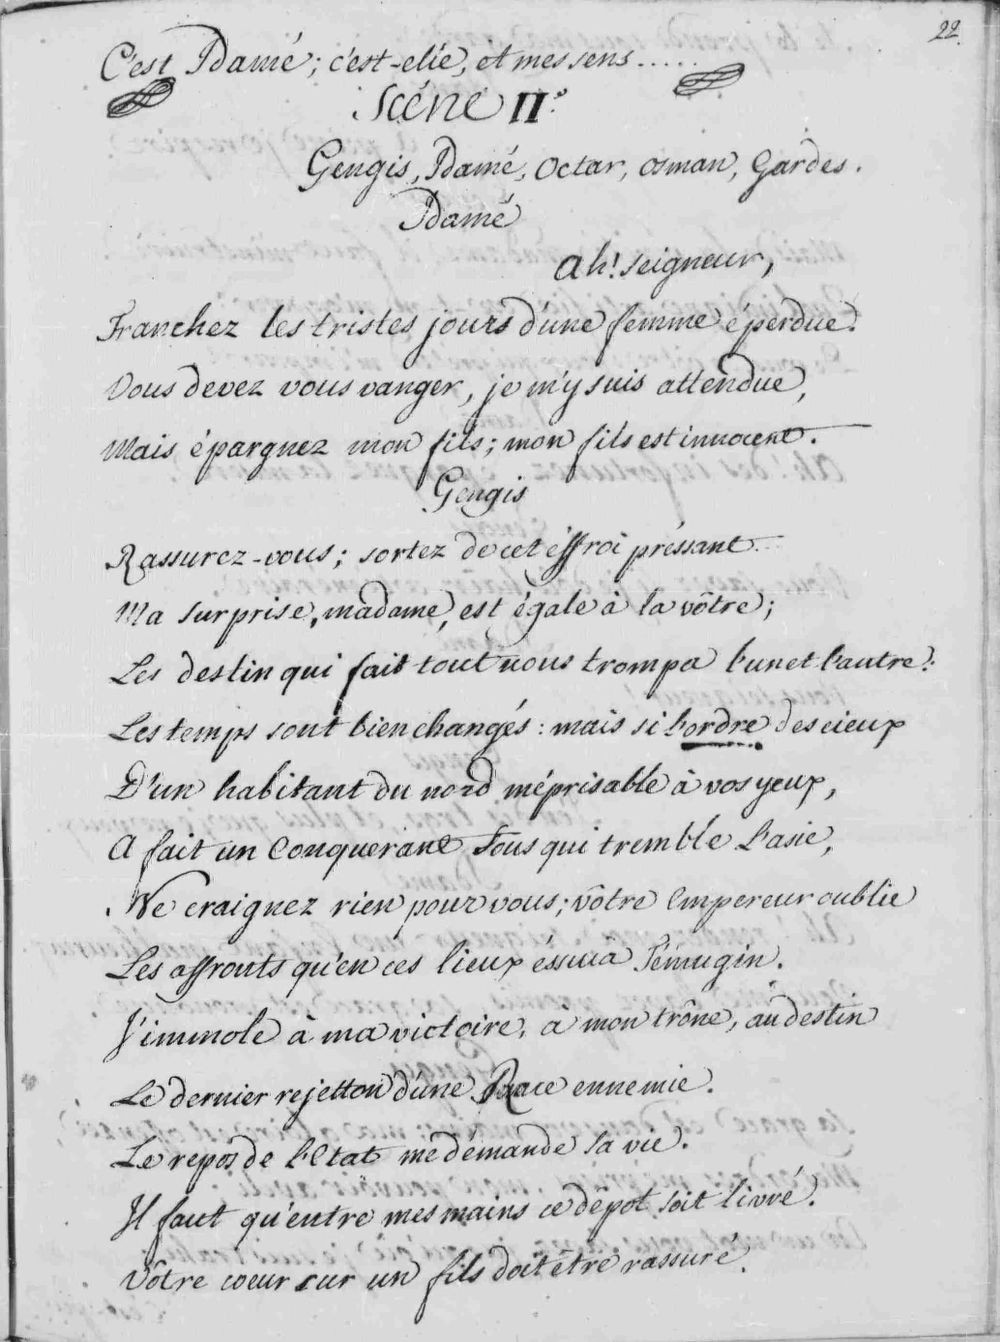 22.
C'est Idamé; c'est-elle, et mes sens.....
Scéne II.e
Gengis, Idamé, Octar, Osman, Gardes.
Idamé
Ah! Seigneur,
Tranchez les tristes jours d'une femme éperdue.
Vous devez vous vanger, je m'y suis attendue,
Mais épargnez mon fils; mon fils est innocent.
Gengis
Rassurez-vous; sortez de cet éffroi préssant...
Ma surprise, madame, est égale à la vôtre;
Les destin qui fait tout nous trompa l'un et l'autre.
Les temps sont bien changés: mais si l'ordre des cieux
D'un habitant du nord méprisable à vos yeux,
A fait un Conquerant sous qui tremble l'asie,
Ne craignez rien pour vous; vôtre Empereur oublie
Les affronts qu'en ces lieux éssuia Témugin.
J'immole à ma victoire, à mon trône, au destin
Le dernier rejetton d'une Race ennemie.
Le repos de l'Etat me démande sa vie.
Il faut qu'entre mes mains ce dépot soit livré.
Vôtre coeur sur un fils doit être rassuré.